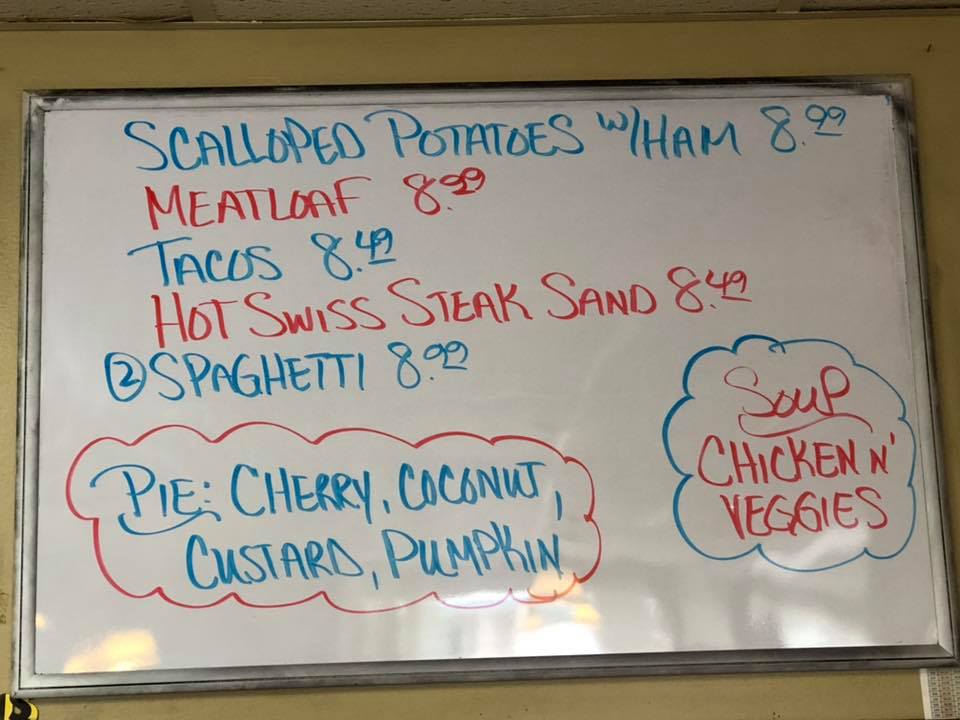 SCALLOPED POTATOES W/HAM 8.99
MEATLOAF 8.99
TACOS 8.49
HOT SWISS STEAK SAND 8.49
② SPAGHETTI 8.99
PIE: CHERRY, COCONUT,
CUSTARD, PUMPKIN
SOUP
CHICKEN N'
VEGGIES